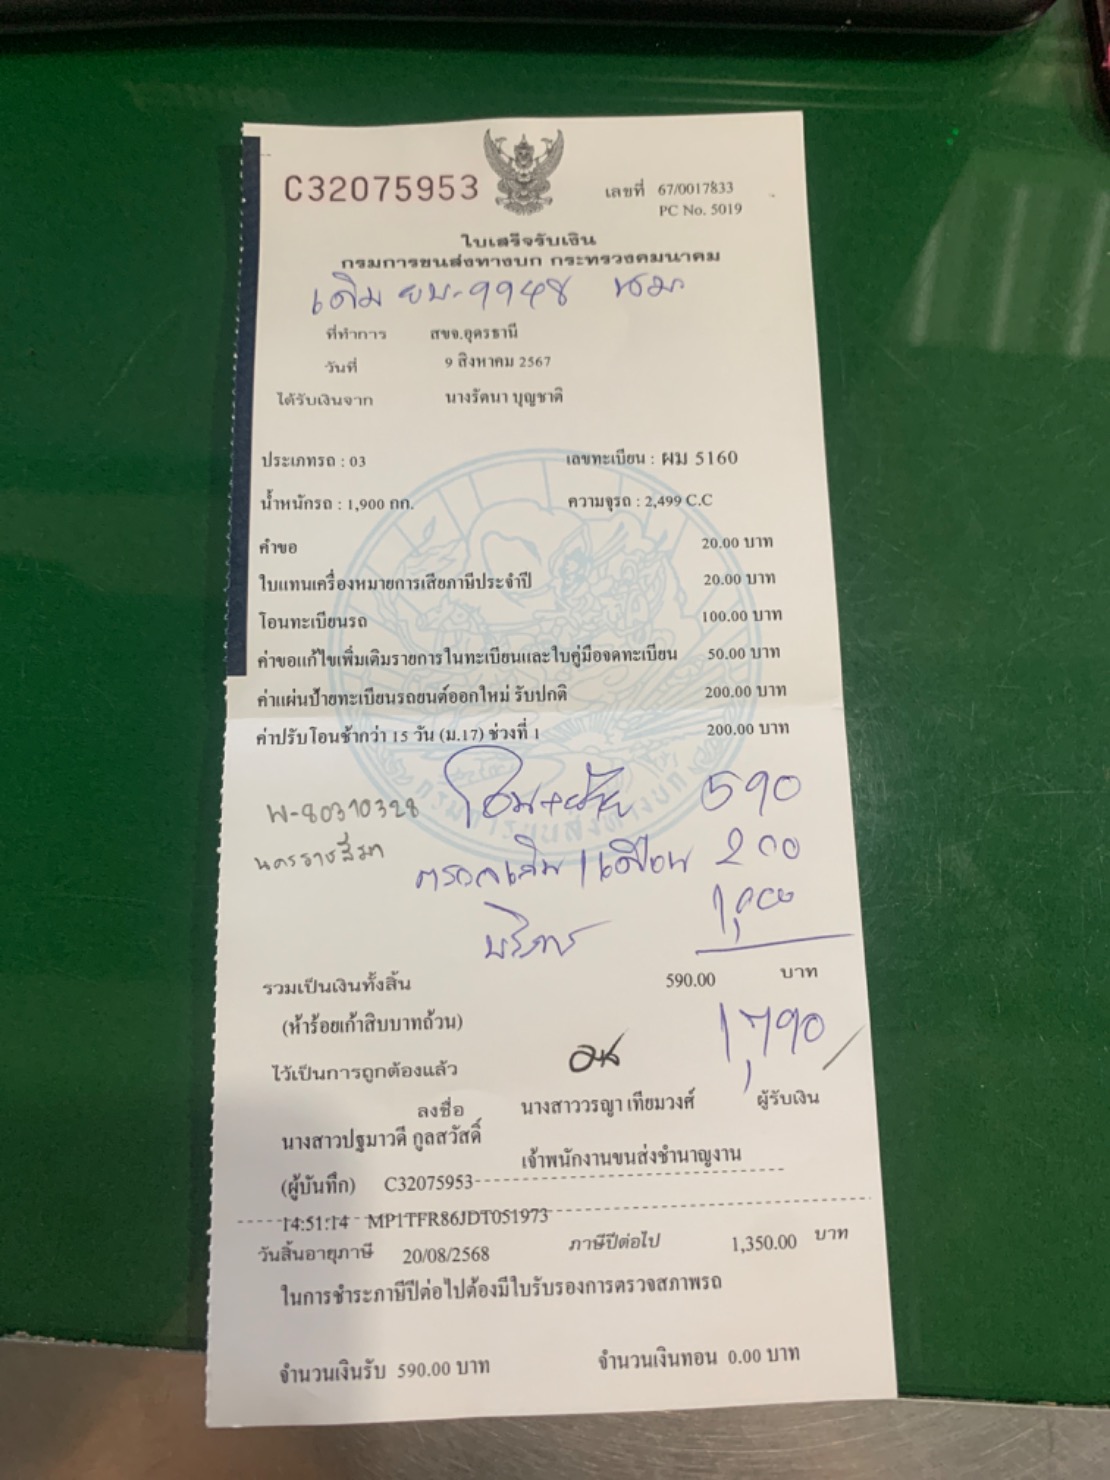 C32075953
เลขที่ 67/0017833
PC No. 5019
ใบเสร็จรับเงิน
กรมการขนส่งทางบก กระทรวงคมนาคม
เดิม ยบ-9948 นม
ที่ทำการ สขจ.อุดรธานี
วันที่ 9 สิงหาคม 2567
ได้รับเงินจาก นางรัตนา บุญชาติ
ประเภทรถ : 03 เลขทะเบียน : ผม 5160
น้ำหนักรถ : 1,900 กก. ความจุรถ : 2,499 C.C
คำขอ 20.00 บาท
ใบแทนเครื่องหมายการเสียภาษีประจำปี 20.00 บาท
โอนทะเบียนรถ 100.00 บาท
ค่าขอแก้ไขเพิ่มเติมรายการในทะเบียนและใบคู่มือจดทะเบียน 50.00 บาท
ค่าแผ่นป้ายทะเบียนรถยนต์ออกใหม่ รับปกติ 200.00 บาท
ค่าปรับโอนช้ากว่า 15 วัน (ม.17) ช่วงที่ 1 200.00 บาท
กรมการขนส่งทางบก
โอน+ย้าย 590
W-80310328
นครราชสีมา
ตรอ เดือน 200
บริการ 1,000
รวมเป็นเงินทั้งสิ้น 590.00 บาท
(ห้าร้อยเก้าสิบบาทถ้วน)
1,790
ไว้เป็นการถูกต้องแล้ว
ลงชื่อ นางสาววรญา เทียมวงศ์ ผู้รับเงิน
นางสาวปฐมาวดี กูลสวัสดิ์
เจ้าพนักงานขนส่งชำนาญงาน
(ผู้บันทึก) C32075953
14:51:14 MP1TFR86JDT051973
วันสิ้นอายุภาษี 20/08/2568 ภาษีปีต่อไป 1,350.00 บาท
ในการชำระภาษีปีต่อไปต้องมีใบรับรองการตรวจสภาพรถ
จำนวนเงินรับ 590.00 บาท จำนวนเงินทอน 0.00 บาท